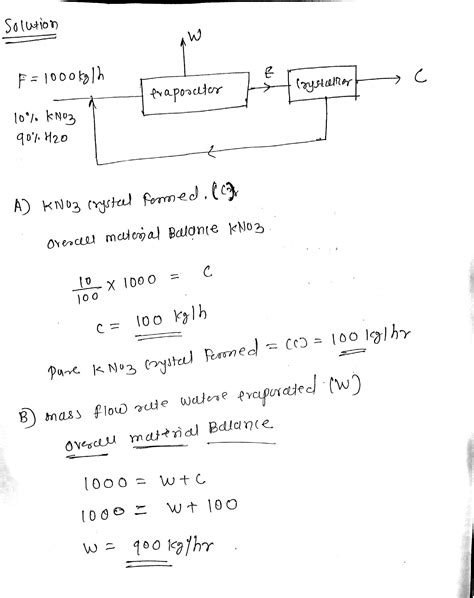 Solution
W
F = 1000 kg/h
Evaporator
E
Crystallizer
C
10% KNO3
90% H2O
C
A) KNO3 crystal formed. (C)
Overall material Balance KNO3
10/100 × 1000 = C
C = 100 kg/h
Pure KNO3 Crystal Formed = (C) = 100 kg/hr
B) mass flow rate water evaporated (W)
Overall material Balance
1000 = W + C
1000 = W + 100
W = 900 kg/hr.